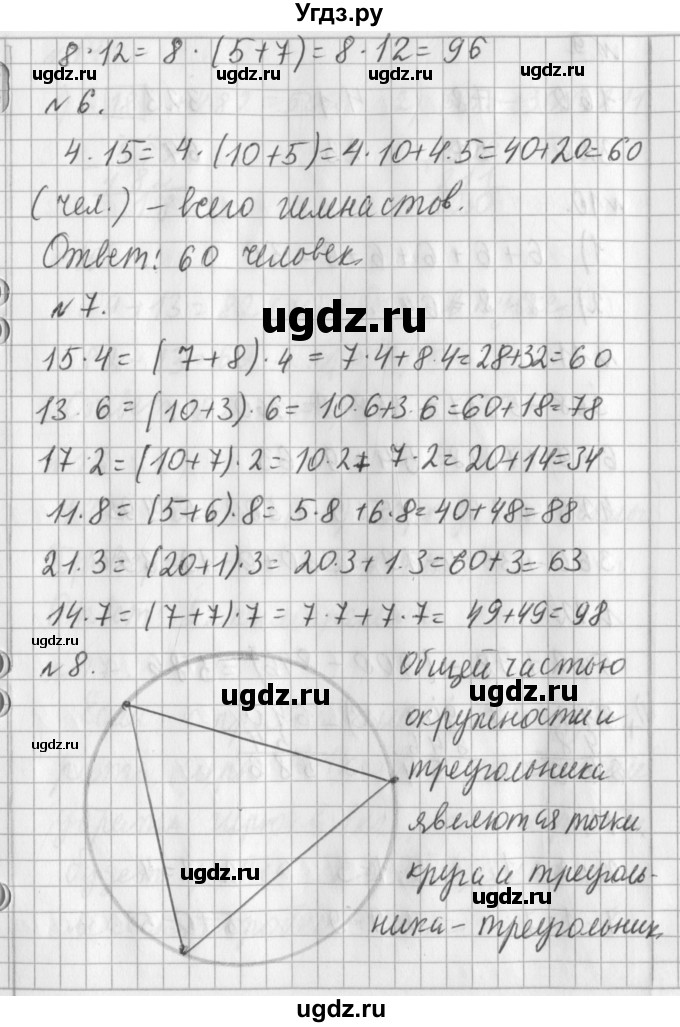 Угдз.ру
8·12= 8·(5+7)=8·12=96
ugdz.ru ugdz.ru ugdz.ru ugdz.ru
№6.
4·15= 4·(10+5)=4·10+4·5=40+20=60
(чел.) – всего гимнастов.
Ответ: 60 человек.
№7.
ugdz.ru
15·4= (7+8)·4 = 7·4+8·4=28+32=60
13 6 =(10+3)·6= 10·6+3·6=60+18=78
17·2=(10+7)·2=10·2+ 7·2=20+14=34
11·8= (5+6)·8= 5·8+6·8=40+48=88
21·3= (20+1)·3= 20·3+1·3=60+3=63
14·7=(7+7)·7= 7·7+7·7= 49+49=98
ugdz.ru
№8. Общей частью
ugdz.ru ugdz.ru
окружности и
ugdz.ru
треугольника
являются точки
круга и треуголь-
ugdz.ru ugdz.ru
ника – треугольник.
ugdz.ru